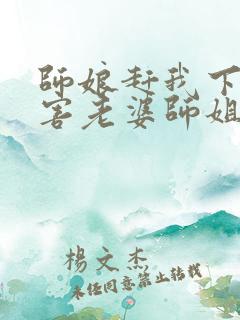 師娘赶我下
害老婆師姐
楊文杰
未任同意禁止转载